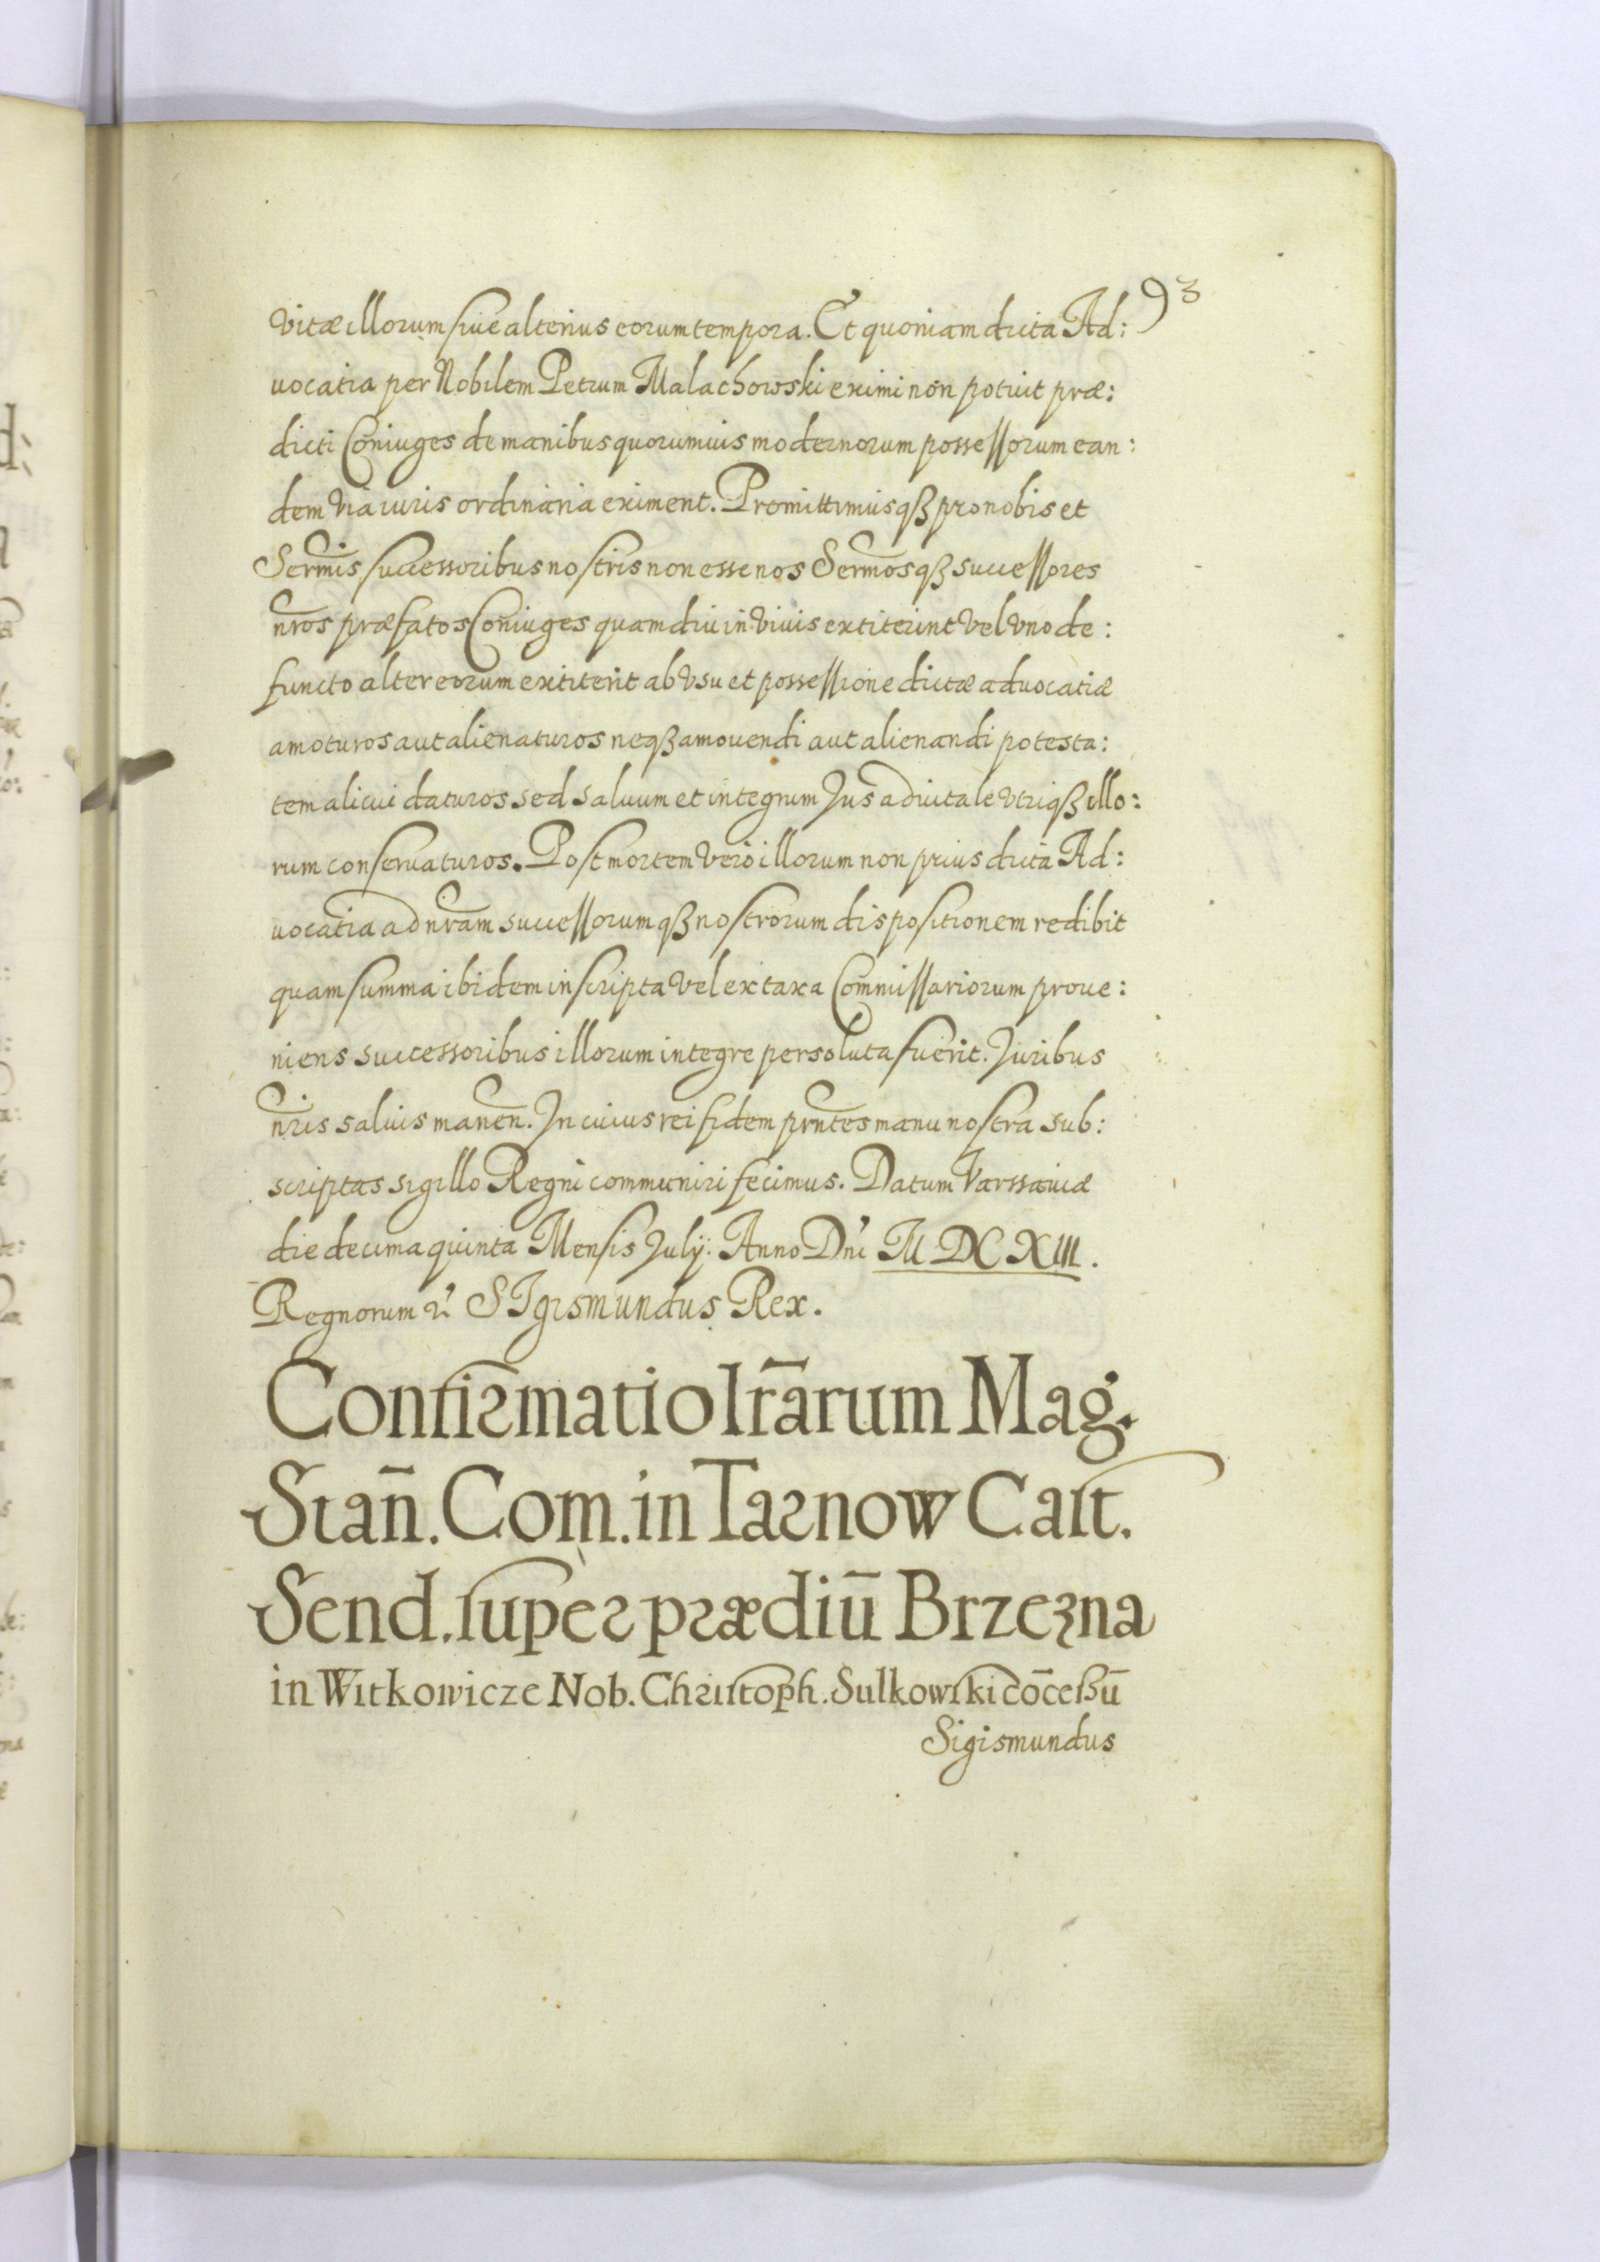 93
vitæ illorum siue alterius eorum tempora. Et quoniam dicta Ad:
uocatia per Nobilem Petrum Malachowski eximi non potuit præ:
dicti Coniuges de manibus quorumuis modernorum possessorum ean:
dem via iuris ordinaria eximent. Promittimusqß pro nobis et
Serm̄is successoribus nostris non esse nos Serm̄osqß successores
nr̄os præfatos Coniuges quamdiu in viuis extiterint vel vno de:
functo alter eorum extiterit ab vsu et possessione dictæ aduocatiæ
amoturos aut alienaturos neqß amouendi aut alienandi potesta:
tem alicui daturos sed saluum et integrum Jus aduitale vtriqß illo:
rum conseruaturos. Post mortem verò illorum non prius dicta Ad:
uocatia ad nr̄am successorumqß nostrorum dispositionem redibit
quam summa ibidem inscripta vel ex taxa Com̄issariorum proue:
niens successoribus illorum integre persoluta fuerit. Juribus
nr̄is saluis manen̄. In cuius rei fidem prn̄tes manu nostra sub:
scriptas sigillo Regni communiri fecimus. Datum Varssauiæ
die decima quinta Mensis Julij. Anno Dni M DC XIII.
Regnorum &c SIgismundus Rex.
Confirmatio lrārum Mag.
Stan̄. Com. in Tarnow Cast.
Send. super prædiū Brzezna
in Witkowicze Nob. Christoph. Sulkowski cōceßū
Sigismundus